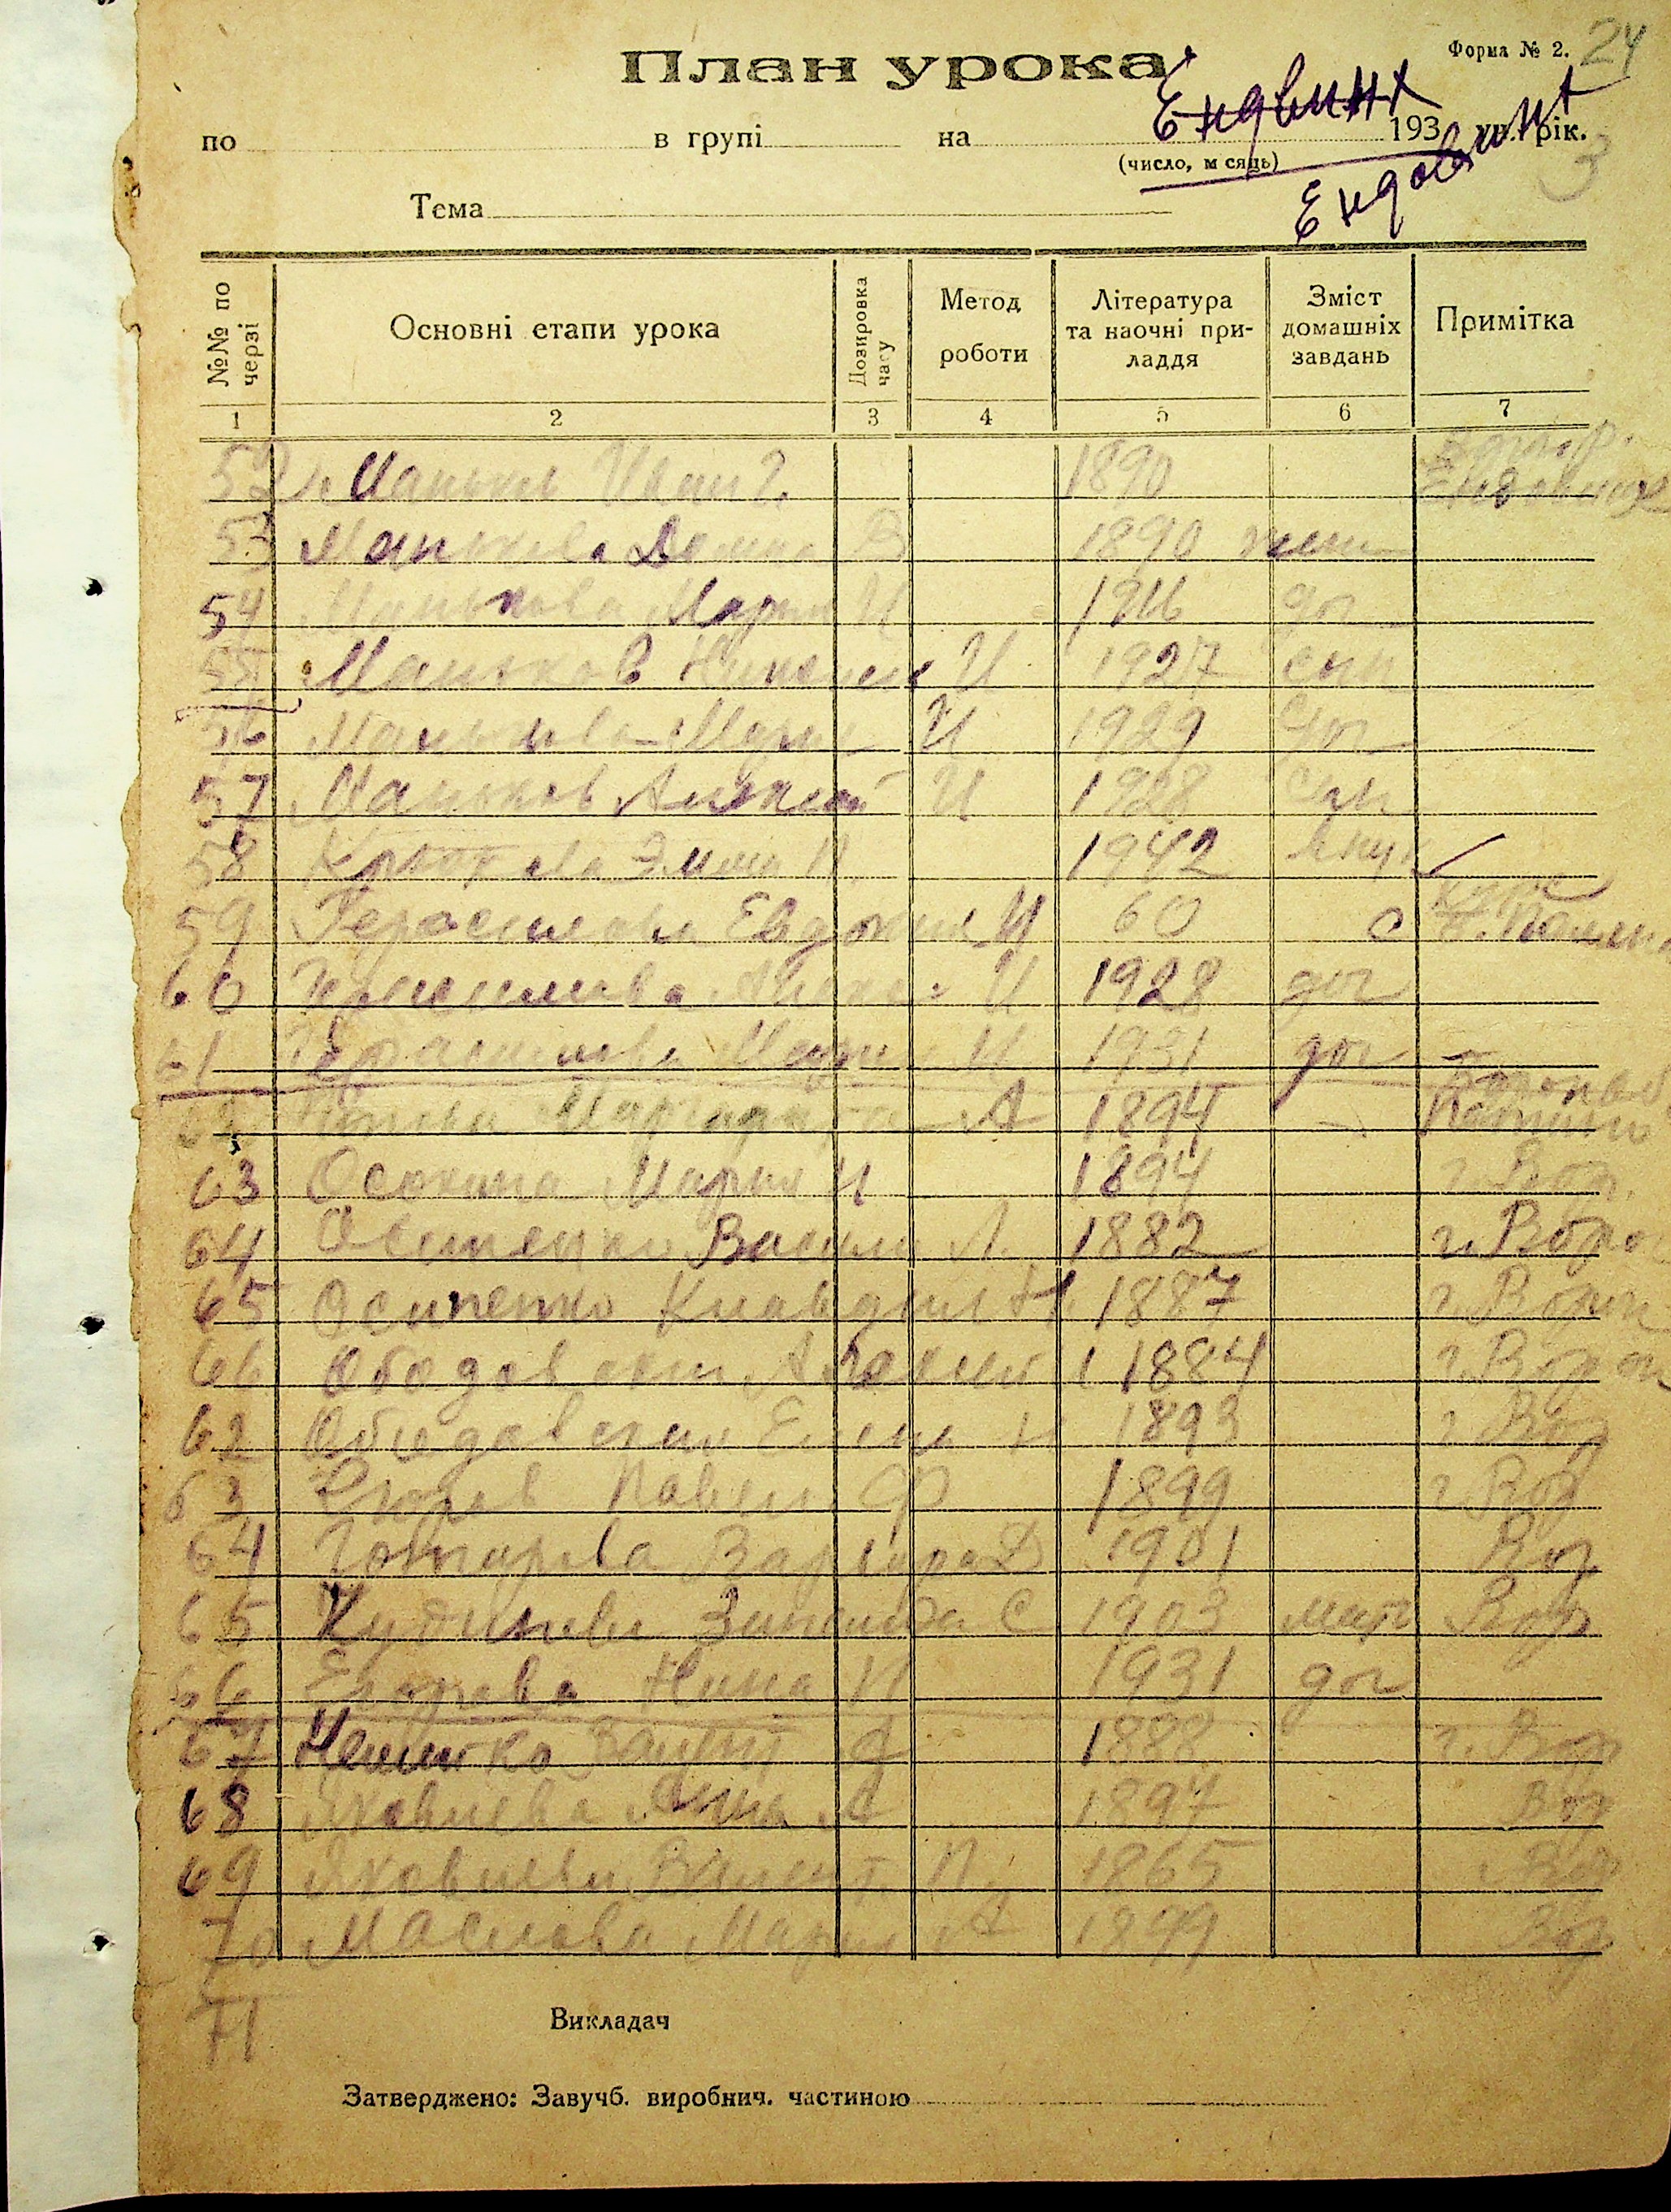 Форма № 2. 24
План урока
Ендвинх
по в групі на 193 уч. рік.
(число, м сяць)
Ендовинх
3
Тема
№№ по черзі Основні етапи урока Дозировка часу Метод роботи Література та наочні при-ладдя Зміст домашніх завдань Примітка
1 2 3 4 5 6 7
52 Маньков Иван Г. 1890
53 Манькова Домна В 1890 жена
54 Манькова Мария И 1916 доч
55 Маньков Николай И 1927 сын
56 Манькова Мария И 1929 доч
57 Маньков Алексей И 1928 сын
58 Эмма 1942 внук
59 Герасимова Евдокия И 60 с
60 Герасимова И 1928 доч
61 Герасимова Мария И 1931 доч
Маргарита А 1894
63 Осокина Мария И 1894
64 Осипенко Васили Л. 1882 г. Воро
65 Осипенко Клавдия Н. 1887 г. Ворон
66 Ободовски Алексей 1884 г. Ворон
62 Ободовская Елена 1893 г. Вор
63 Павел Ф 1899 г. Вор
64 Варвара Д 1901 Вор
65 Кудинова Зинаида С 1903 мать Вор
66 Егорова Нина И 1931 доч
67 Валент 1888 г. Вор
68 Яковлева Анна А 1897 Вор
69 Яковлева Валент. П. 1865 Вор
70 Маслова Мария А 1899 Вор
71
Викладач
Затверджено: Завучб. виробнич. частиною